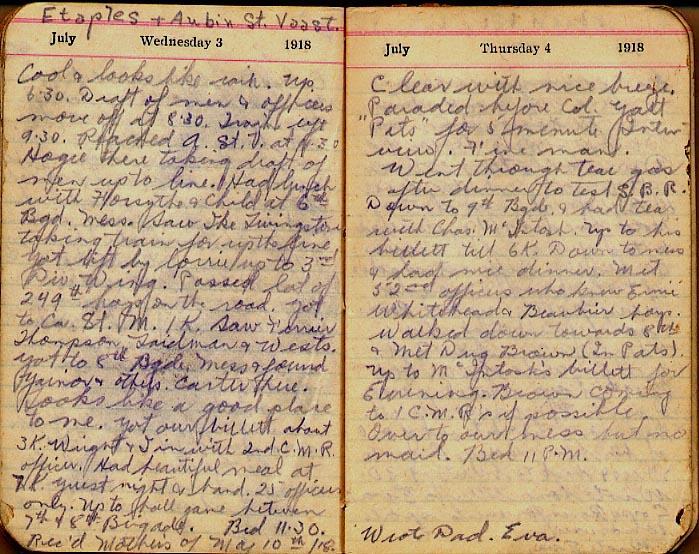 Etaples & Aubin St. Vaast.
July Wednesday 3 1918
Cool & looks like rain. Up
6:30. Draft of men & officers
move off at 8:30. Train left
9:30. Reached A. St. V. at 11.30
Hogie there taking draft of
men up to line. Had lunch
with Forsythe & Child at 6th
Bgd. Mess. Saw The Livingstone
taking train for up the line
Got left by lorrie up to 3rd
Div. Wing. Passed lot of
249th boys on the road. Got
to Ca. St. M. 1K. Saw
Thompson, & Wests.
Got to 8th Bgde. Mess & found
& others. Carter there.
Looks like a good place
to me. Got our billett about
3K. Wright & I in with 2nd C.M.R.
officer. Had beautiful meal at
7K. guest night & band. 25 officers
only. Up to ball game between
7th & 8th Brigade. Bed 11.30.
Rec'd Mothers of May 10th/18.
July Thursday 4 1918
Clear with nice breeze.
Paraded before Col. Gatt
"Pats" for 5 minute Inter-
view. Fine man.
Went through tear gas
after dinner to test S.B.R.
Down to 9th Bgde. & had tea
with Chas. McIntosh. Up to his
billett till 6K. Down to mess
& had nice dinner. Met
52nd officers who knew Ernie
Whitehead & Beaubier boys.
Walked down towards 8th
& Met Dug Brown (In Pats).
Up to McIntosh's billett for
Evening. Brown coming
to 1 C.M.R's if possible.
Over to our mess but no
maid. Bed 11 P.M.
Wrote Dad. Eva.